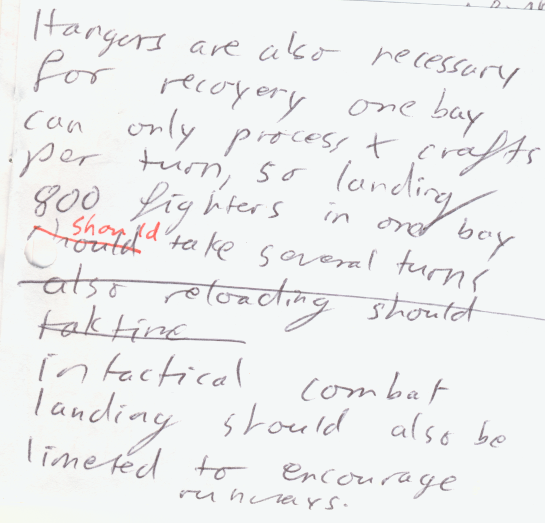 Hangers are also necessary
for recovery one bay
can only process x crafts
per turn, so landing
800 fighters in one bay
should
would take several turns
also reloading should
tak time
in tactical combat
landing should also be
limeted to encourage
runways.